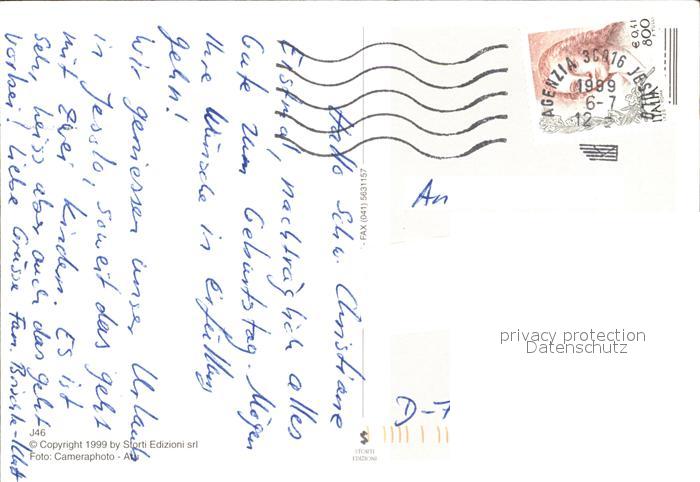 Hallo Schw. Christiane
Erstmal, nachträglich alles
Gute zum Geburtstag. Mögen
Ihre Wünsche in Erfüllung
gehn!
Wir geniessen unser Urlaub
in Jesolo, soweit das geht
mit zwei Kindern. Es ist
sehr heiss aber auch das geht
vorbei! Liebe Grüsse Fam.
- FAX (041) 5631157
J46
© Copyright 1999 by Storti Edizioni srl
Foto: Cameraphoto -
STORTI
EDIZIONI
€ 0,41
800
ITALIA
AGENZIA 30016
1999
6-7
12
An
D-
privacy protection
Datenschutz